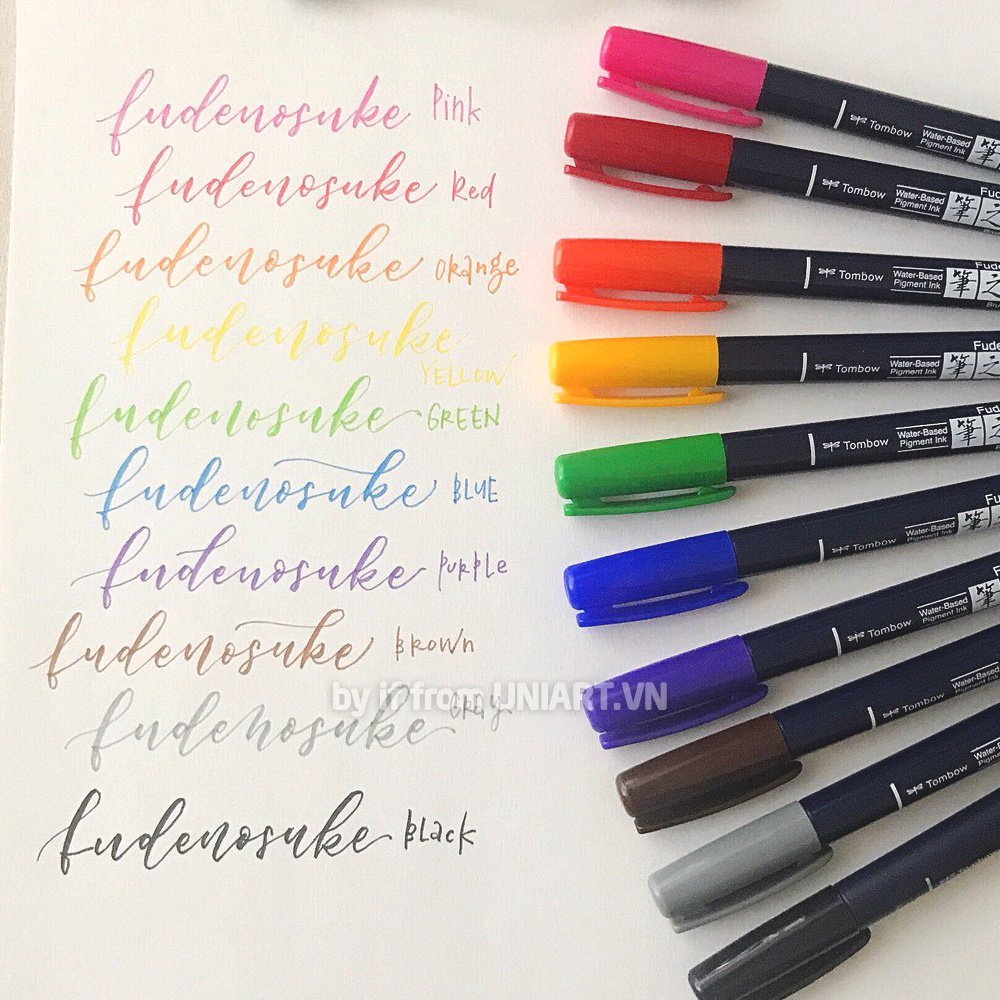 fudenosuke Pink
fudenosuke Red
fudenosuke orange
fudenosuke
YELLOW
fudenosuke GREEN
fudenosuke BLUE
fudenosuke PURPLE
fudenosuke Brown
fudenosuke GRAY
fudenosuke Black
by if from UNIART.VN
Tombow Water-Based Pigment Ink 筆
Tombow Water-Based Pigment Ink 筆之 Fud
Tombow Water-Based Pigment Ink 筆之 Fude
Tombow Water-Based Pigment Ink 筆之 Fude
Tombow Water-Based Pigment Ink 筆之 Fud
Tombow Water-Based Pigment Ink 筆 Fu
Tombow Water-Based Pigment Ink 筆 F
Tombow Water-Based Pigment Ink
Tombow Water-B